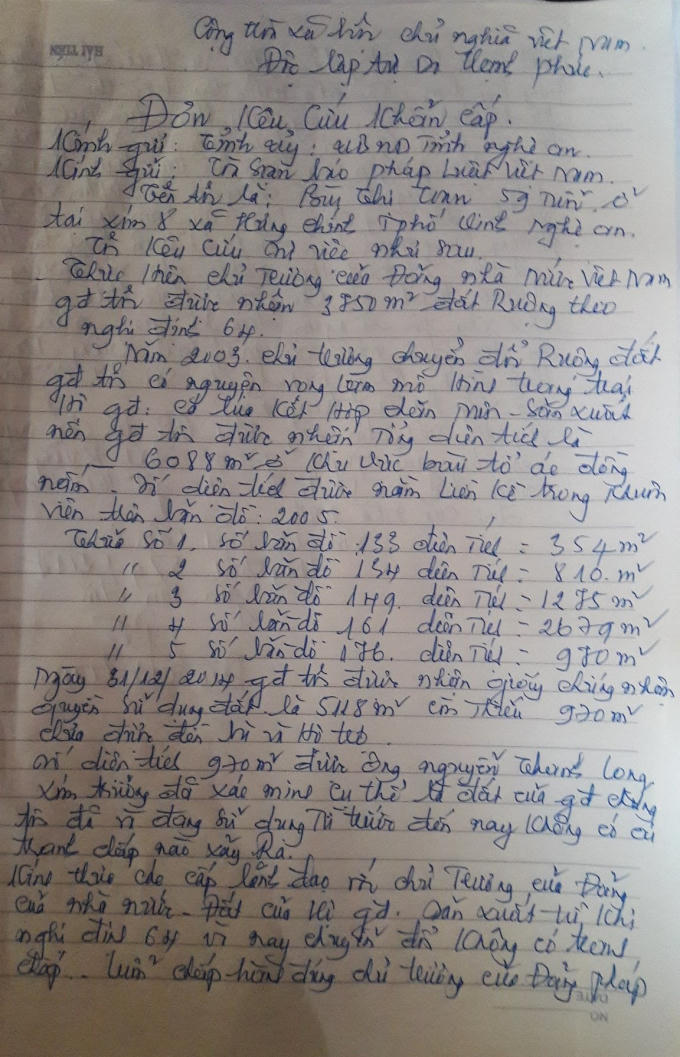 Cộng hòa xã hội chủ nghĩa Việt Nam.
Độc lập tự do hạnh phúc.
Đơn Kêu Cứu Khẩn Cấp.
Kính gửi: Tỉnh ủy: UBND Tỉnh nghệ an.
Kính gửi: Tòa soạn báo pháp luật Việt Nam.
Tên tôi là: Bùy Thị 59 Tuổi. ở
tại xóm 8 xã Hưng chính T phố Vinh Nghệ an.
Tôi Kêu Cứu một việc như sau.
Thực hiện chủ Trương của Đảng nhà nước Việt Nam
gđ tôi được nhận 3850m² đất Ruộng theo
nghị định 64.
Năm 2003. chủ trương chuyển đổi Ruộng đất
gđ tôi có nguyện vọng làm mô hình trang trại
hộ gđ. Kết Hợp sản xuất
nên gđ tôi được nhận Tổng diện tích là
6088m² ở khu vực bàu tổ đồng
nằm. Số diện tích được nằm Liền Kề trong Khuôn
viên trên bản đồ: 2005.
Thửa số 1. số bản đồ 133 diện Tích = 354m²
" 2 số bản đồ 134 diện Tích = 810.m²
" 3 số bản đồ 149. diện Tích = 1275m²
" 4 số bản đồ 161 diện Tích = 2679m²
" 5 số bản đồ 176. diện Tích = 970m²
Ngày 31/12/2014 gđ tôi được nhận giấy chứng nhận
quyền sử dụng đất là 5118m² còn Thiếu 970m²
chưa được
số diện tích 970m² được ông nguyễn Thành Long
xóm trưởng đã xác minh cụ thể là đất của gđ chúng
tôi đã và đang sử dụng Từ trước đến nay Không có
tranh chấp nào xảy Ra.
Kính thưa các cấp lãnh đạo chủ Trương của Đảng
của nhà nước. Đất của hộ gđ. Sản xuất từ Khi
nghị định 64 và nay chuyển đổi Không có tranh
chấp. Luôn chấp hành đúng chủ trương của Đảng pháp
HẢI TIẾN
DATE
NO